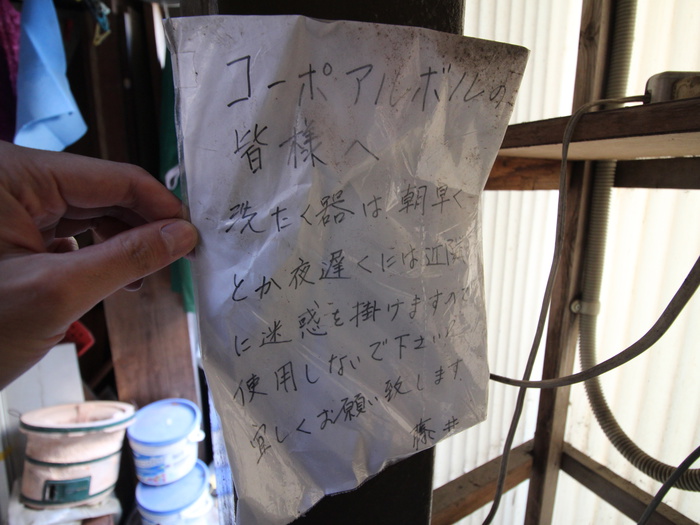 コーポアルボルの
皆様へ
洗たく器は朝早く
とか夜遅くには近隣
に迷惑を掛けますので
使用しないで下さい。
宜しくお願い致します。
藤井